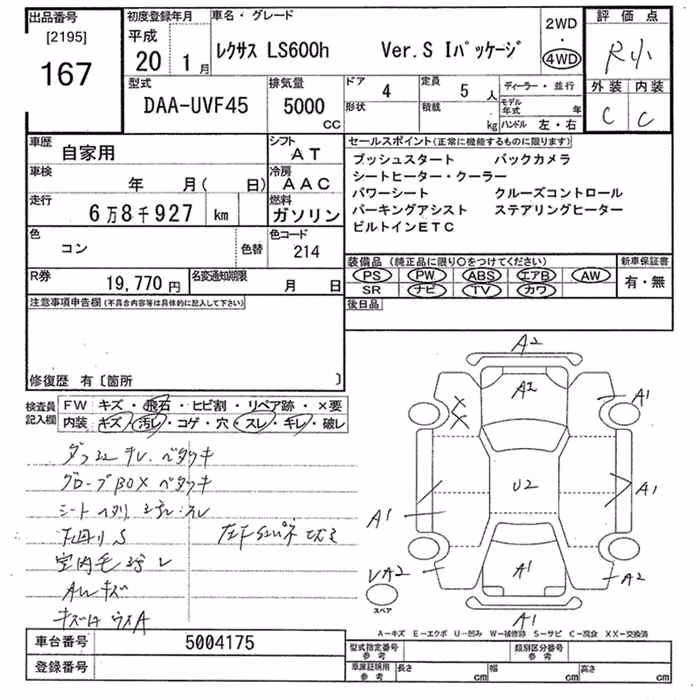 出品番号 初度登録年月 車名・グレード 2WD 評価点
[2195] 平成 ・
167 20 1月 レクサス LS600h Ver.S Iパッケージ 4WD R
外装 内装
型式 排気量 ドア 4 定員 5人 ディーラー・並行 C C
DAA-UVF45 5000 cc 形状 積載 kg モデル年式 年
ハンドル 左・右
車歴 自家用 シフト AT セールスポイント(正常に機能するものに限ります)
プッシュスタート バックカメラ
車検 年 月( 日) 冷房 AAC シートヒーター・クーラー
パワーシート クルーズコントロール
走行 6万8千927 km 燃料 ガソリン パーキングアシスト ステアリングヒーター
ビルトインETC
色 コン 色替 色コード 214
装備品(純正品に限り○をつけてください) 新車保証書
R券 19,770円 名変通知期限 月 日 PS PW ABS エアB AW 有・無
SR ナビ TV カワ
注意事項申告欄(不具合内容等は具体的に記入して下さい) 後日品
修復歴 有〔箇所 〕
検査員記入欄 FW キズ・飛石・ヒビ割・リペア跡・×要
内装 キズ・汚レ・コゲ・穴・スレ・キレ・破レ
A2
A2 A1
ベタツキ
グローブBOX ベタツキ
シート
U2 A1
A1
下廻りS
室内毛
AWキズ A1 A2
VA2
キズハ ウスA A1
スペア
A-キズ E-エクボ U-凹み W-補修跡 S-サビ C-腐食 XX-交換済
車台番号 5004175 型式指定番号 参考 類別区分番号 参考
登録番号 車庫証明用 参考 長さ cm 幅 cm 高さ cm